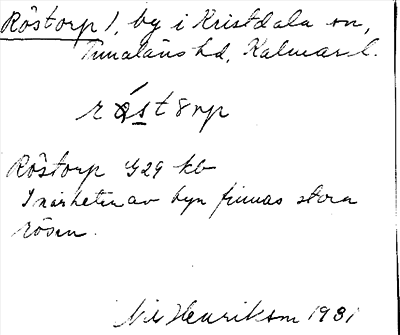 Röstorp 1, by i Kristdala sn,
Tunaläns hd, Kalmar l.
röst8rp
Röstorp 429 kb
I närheten av byn finnas stora
rösen.
Nils Henriksson 1931